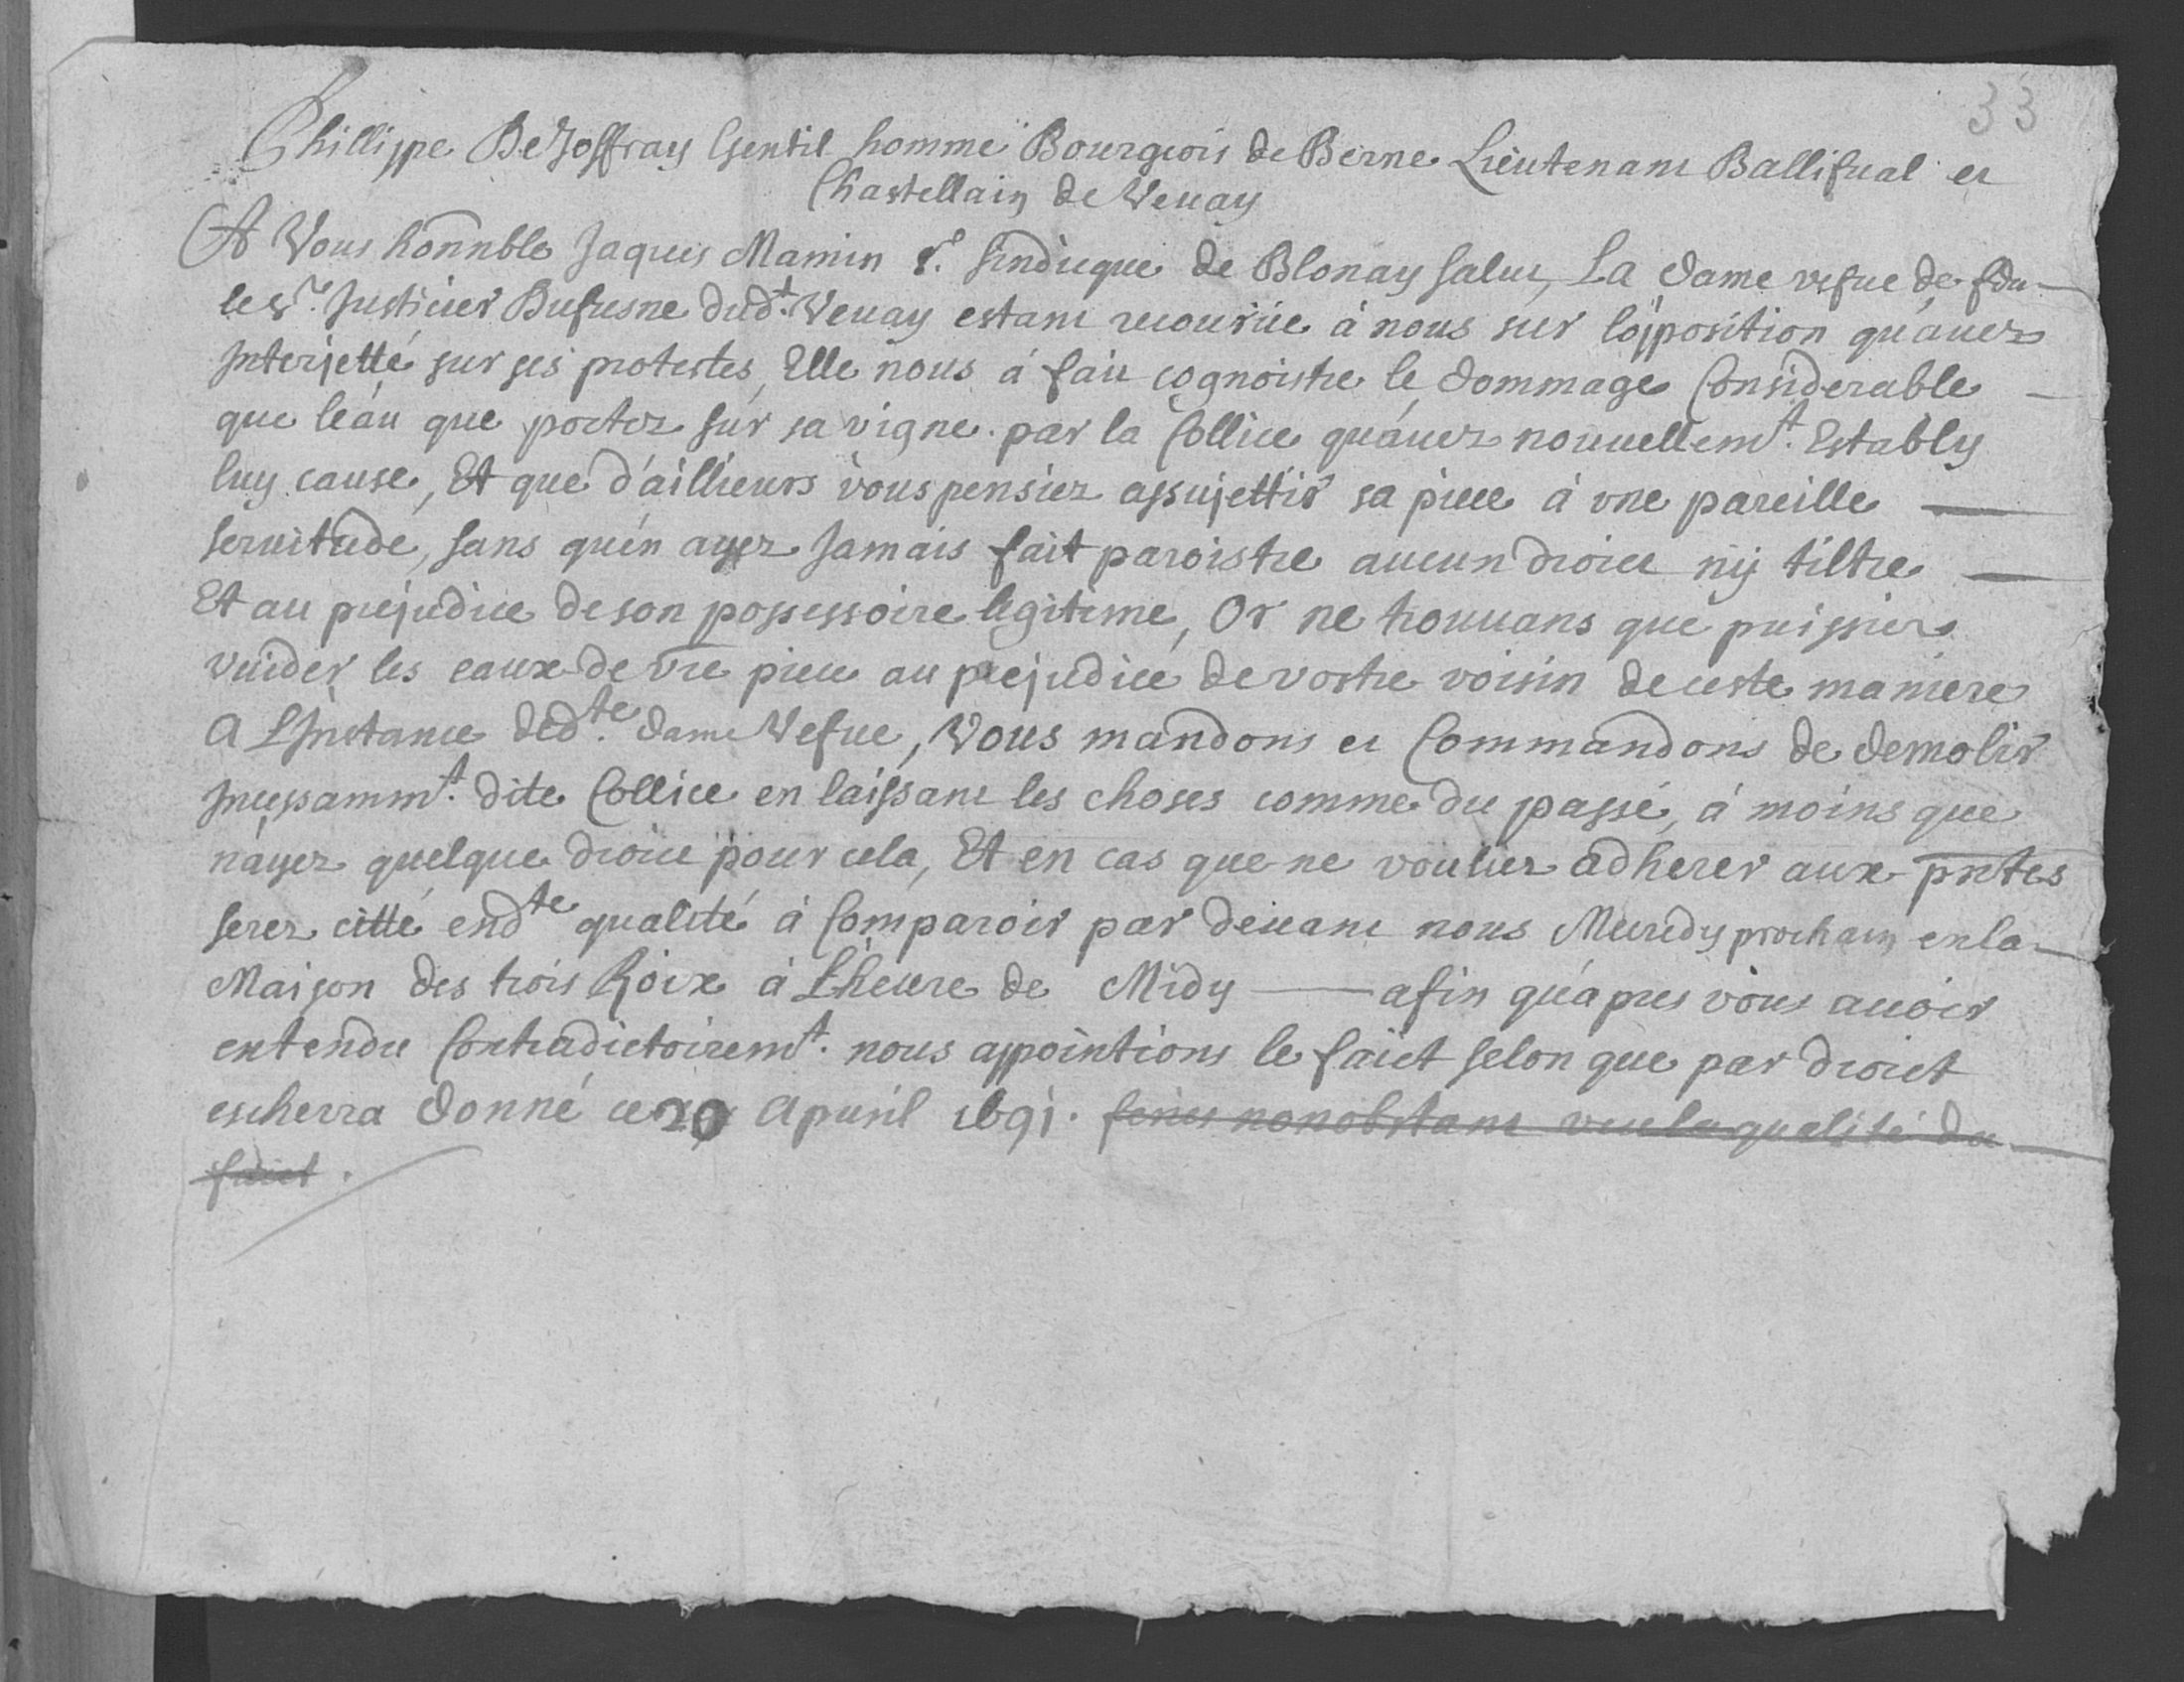 33
Phillippe De Joffray Gentil homme Bourgeois de Berne Lieutenant Ballifual et
Chastellain de Veuay
A Vous honnble Jaques Mamin Sindicque de Blonay salut, La Dame vefue de fdu
le Sr. Justicier Dufresne dudt. Veuay estant recourüe à nous sur lópposition quáuez
Interjetté sur ses protestes, Elle nous á fait cognoistre le dommage Considerable
que léau que portez sur sa vigne par la Collice quáuez nouuellemt. Estably
luy cause, Et que d'aillieurs vous pensiez assujettir sa piece á vne pareille
seruitude, sans quén ayez Jamais fait paroistre aucun droict nÿ tiltre
Et au prejudice de son possessoire legitime, Or ne trouuans que puissiez
vuider les eaux de vre piece au prejudice de vostre voisin de ceste maniere
A LInstance dedte. dame Vefue, Vous mandons et Commandons de demolir
Incessammt. dite Collice en laissant les choses comme du passé, á moins que
náyez quelque droict pour cela, Et en cas que ne vouliez adherer aux pntes
serez citté endte qualité á Comparoir par deuant nous Mecredy prochain en la
Maison des trois Roix á Lheure de Midy afin qu'ápres vous auoir
entendu Contradictoiremt. nous appointions le faict selon que par droict
escherra donné ce 29 Apuril 1691. feries nonobstant veu la qualité du
faict.